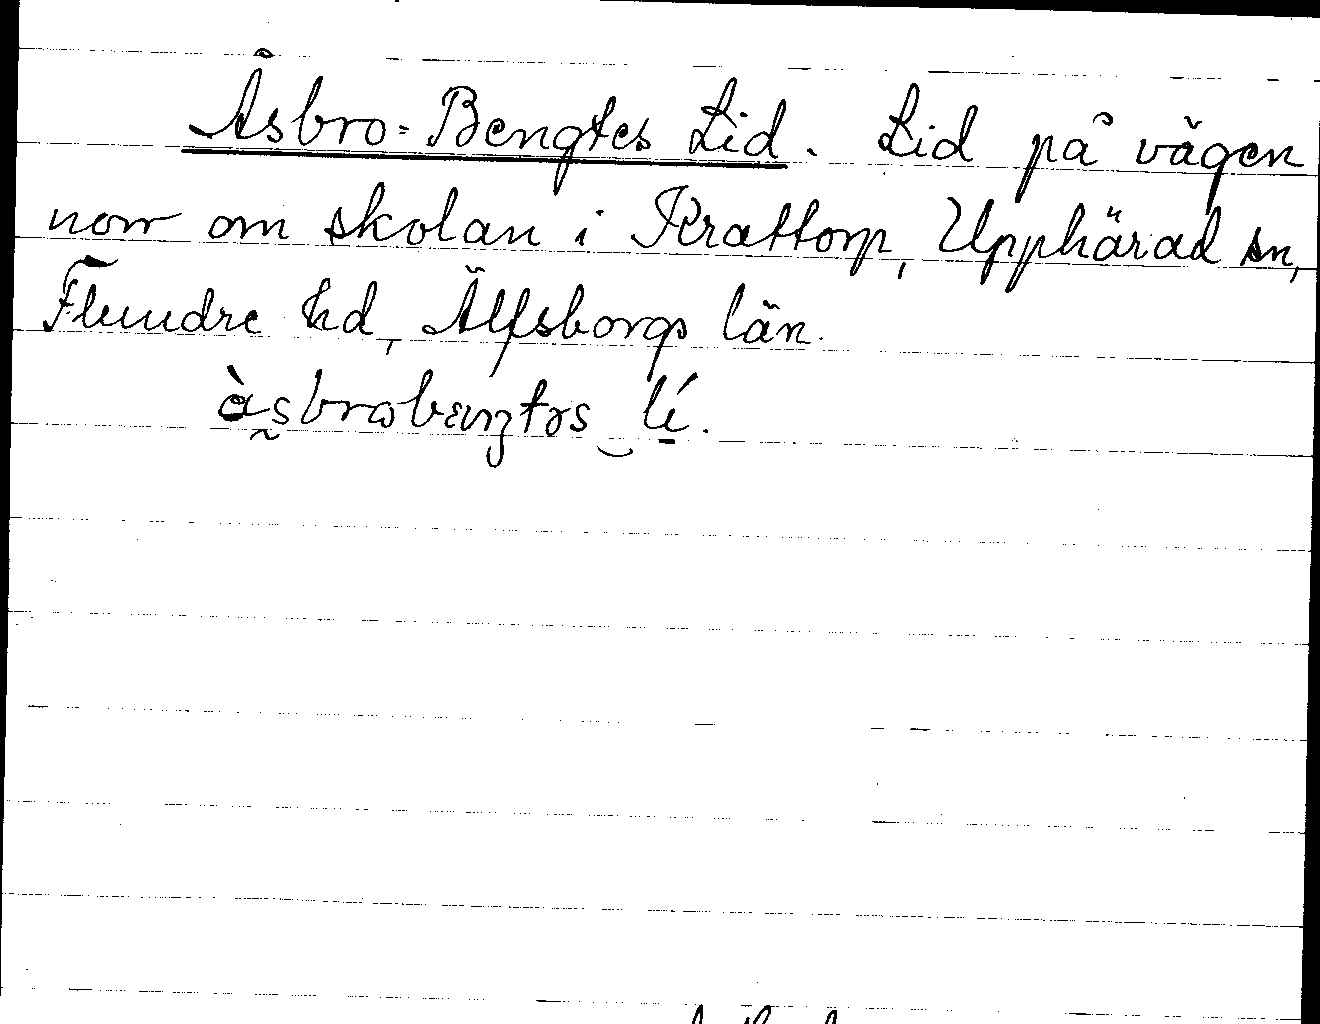 Åsbro-Bengtes Lid. Lid på vägen
norr om skolan i Krattorp, Upphärad sn,
Flundre hd, Älfsborgs län.